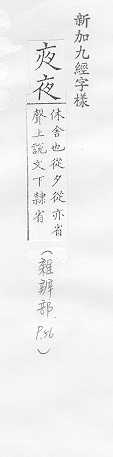 新加九經字樣
夾夜
休舍也從夕從亦省
聲上說文下隸省
(雜辨部 P.56)